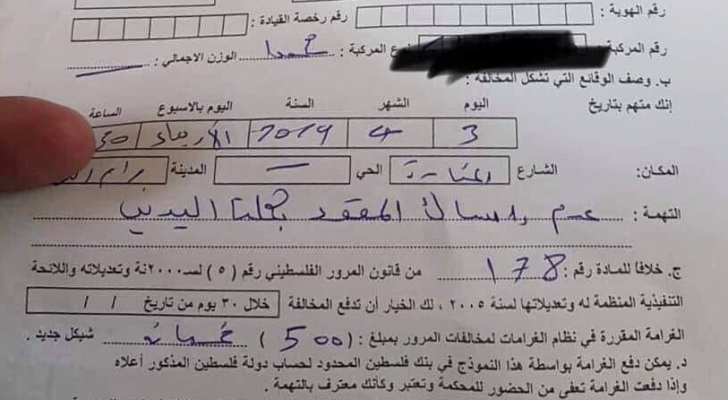 رقم الهوية :
رقم رخصة القيادة :
رقم المركبة نوع المركبة : الوزن الاجمالي :
ب. وصف الوقائع التي تشكل المخالفة :
إنك متهم بتاريخ اليوم الشهر السنة اليوم بالاسبوع الساعة
3 4 2019 الأربعاء
المكان: الشارع الحي المدينة
التهمة : عدم امساك المقود بكلتا اليدين
ج. خلافاً للمادة رقم : 178 من قانون المرور الفلسطيني رقم (٥) لسـ٢٠٠٠نة وتعديلاته واللائحة
التنفيذية المنظمة له وتعديلاتها لسنة ٢٠٠٥ ، لك الخيار أن تدفع المخالفة خلال ٣٠ يوم من تاريخ / /
الغرامة المقررة في نظام الغرامات لمخالفات المرور بمبلغ : (500) خمسمائة شيكل جديد .
د. يمكن دفع الغرامة بواسطة هذا النموذج في بنك فلسطين المحدود لحساب دولة فلسطين المذكور أعلاه
وإذا دفعت الغرامة تعفى من الحضور للمحكمة وتعتبر وكأنك معترف بالتهمة .